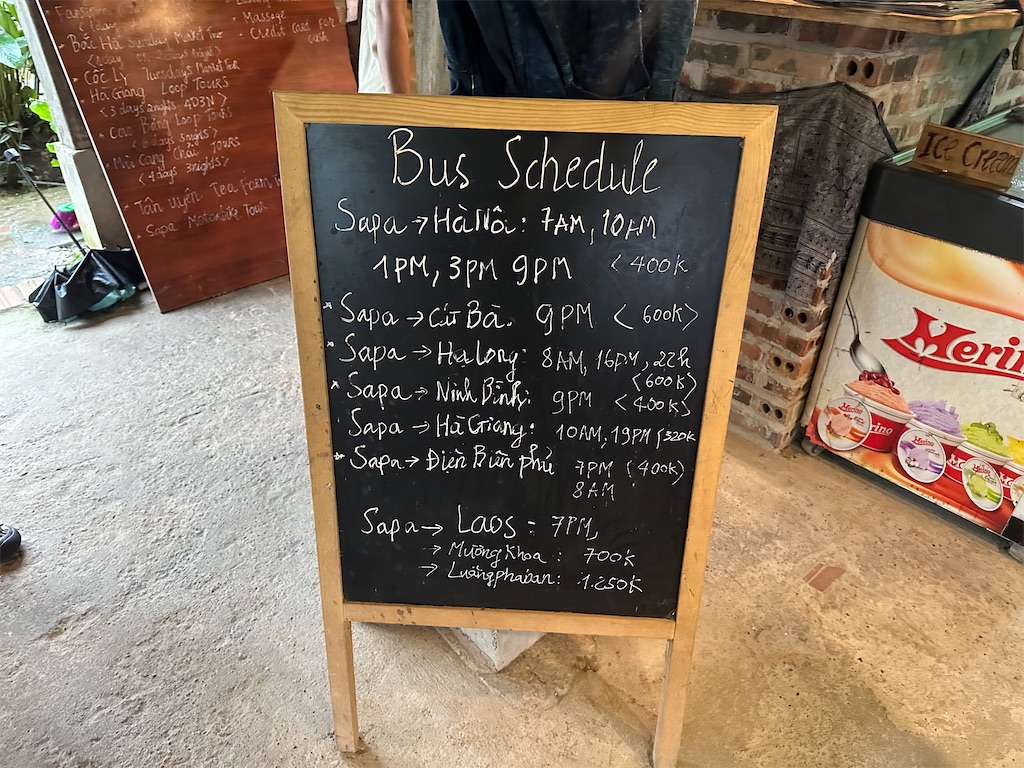 Fansipan
Bắc Hà Sunday Market Tour
Cốc Ly Tuesdays Market Tour
Hà Giang Loop Tours
< 3 days 2 nights 4D3N >
Cao Bằng Loop Tours
Mù Cang Chải Tours
< 4 days 3 nights >
Tân uyên Tea Farm
Sapa Motorbike Tour
- Massage
- Credit card for
cash
Bus Schedule
Sapa → Hà Nội: 7AM, 10AM
1PM, 3PM 9PM < 400K
* Sapa → Cát Bà. 9PM < 600K >
* Sapa → Hạ Long: 8AM, 16PM, 22h
< 600K >
* Sapa → Ninh Bình: 9PM < 400K >
Sapa → Hà Giang: 10AM, 19PM (320K
* Sapa → Điện Biên phủ 7PM (400K)
8AM
Sapa → Laos = 7PM,
→ Mường Khoa : 700K
→ Luangphaban: 1.250K
Ice Cream
Merino
Merino
Merino
Merino
Merino